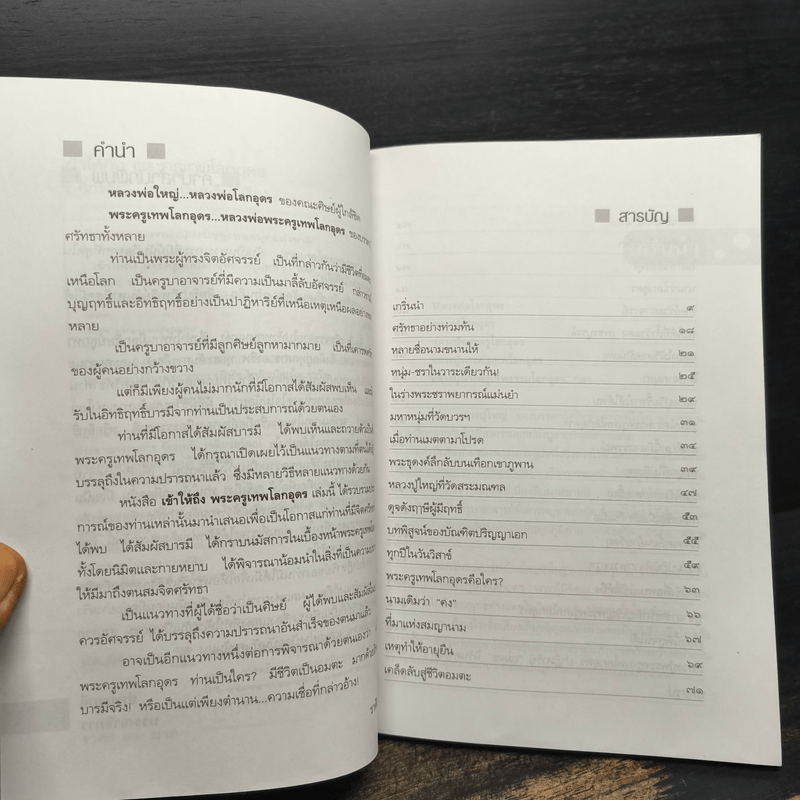 คำนำ
หลวงพ่อใหญ่...หลวงพ่อโลกอุดร ของคณะศิษย์ผู้ใกล้ชิด
พระครูเทพโลกอุดร...หลวงพ่อพระครูเทพโลกอุดร
ศรัทธาทั้งหลาย
ท่านเป็นพระผู้ทรงจิตอัศจรรย์ เป็นที่กล่าวกันว่ามีชีวิต
เหนือโลก เป็นครูบาอาจารย์ที่มีความเป็นมาลี้ลับอัศจรรย์
บุญฤทธิ์และอิทธิฤทธิ์อย่างเป็นปาฏิหาริย์ที่เหนือเหตุเหนือผลอย่าง
หลาย
เป็นครูบาอาจารย์ที่มีลูกศิษย์ลูกหามากมาย เป็นที่เคารพ
ของผู้คนอย่างกว้างขวาง
แต่ก็มีเพียงผู้คนไม่มากนักที่มีโอกาสได้สัมผัสพบเห็น
รับในอิทธิฤทธิ์บารมีจากท่านเป็นประสบการณ์ด้วยตนเอง
ท่านที่มีโอกาสได้สัมผัสบารมี ได้พบเห็นและถวายตัวเป็น
พระครูเทพโลกอุดร ได้กรุณาเปิดเผยไว้เป็นแนวทางตามที่ตนได้
บรรลุถึงในความปรารถนาแล้ว ซึ่งมีหลายวิธีหลายแนวทางด้วยกัน
หนังสือ เข้าให้ถึง พระครูเทพโลกอุดร เล่มนี้ ได้รวบรวม
การณ์ของท่านเหล่านั้นมานำเสนอเพื่อเป็นโอกาสแก่ท่านที่มีจิตศรัทธา
ได้พบ ได้สัมผัสบารมี ได้กราบนมัสการในเบื้องหน้าพระครูเทพ
ทั้งโดยนิมิตและกายหยาบ ได้พิจารณาน้อมนำในสิ่งที่เป็นความ
ให้มีมาถึงตนสมจิตศรัทธา
เป็นแนวทางที่ผู้ได้ชื่อว่าเป็นศิษย์ ผู้ได้พบและสัมผัส
ควรอัศจรรย์ ได้บรรลุถึงความปรารถนาอันสำเร็จของตนมาแล้ว
อาจเป็นอีกแนวทางหนึ่งต่อการพิจารณาด้วยตนเองว่า
พระครูเทพโลกอุดร ท่านเป็นใคร? มีชีวิตเป็นอมตะ มากด้วย
บารมีจริง! หรือเป็นแต่เพียงตำนาน...ความเชื่อที่กล่าวอ้าง!
สารบัญ
เกริ่นนำ ๙
ศรัทธาอย่างท่วมท้น ๑๘
หลายชื่อนามขนานให้ ๒๑
หนุ่ม-ชราในวาระเดียวกัน! ๒๕
ในร่างพระชราพยากรณ์แม่นยำ ๒๙
มหาหนุ่มที่วัดบวรฯ ๓๑
เมื่อท่านเมตตามาโปรด ๓๔
พระธุดงค์ลึกลับบนเทือกเขาภูพาน ๓๙
หลวงปู่ใหญ่ที่วัดสระมณฑล ๔๗
ดุจดังฤาษีผู้มีฤทธิ์ ๕๓
บทพิสูจน์ของบัณฑิตปริญญาเอก ๕๕
ทุกปีในวันวิสาข์ ๕๙
พระครูเทพโลกอุดรคือใคร? ๖๓
นามเดิมว่า "คง" ๖๖
ที่มาแห่งสมญานาม ๖๗
เหตุทำให้อายุยืน ๖๙
เคล็ดลับสู่ชีวิตอมตะ ๗๑